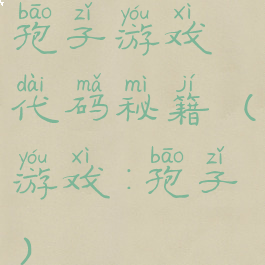 bāo zǐ yóu xì
孢子游戏
dài mǎ mì jí
代码秘籍（
yóu xì bāo zǐ
游戏：孢子
）